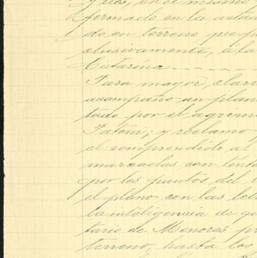 y tres, en el mismo
formado en la actua
do en terreno que p
clusivamente, a la
Catarina
Para mayor clari
acompaño un plan
tado por el agrime
Patoni; y reclamo
el comprendido al
marcados con tinta
por los puntos del
el plano con las let
la inteligencia de que
tario de Menores pr
terreno, hasta los